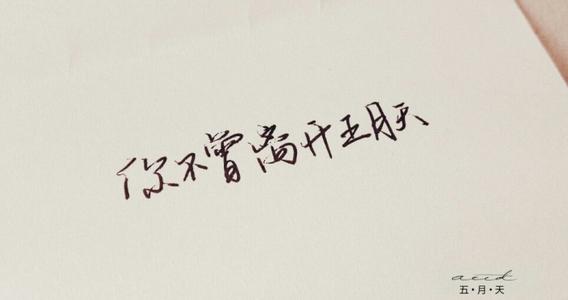 你不曾离开五月天
五·月·天